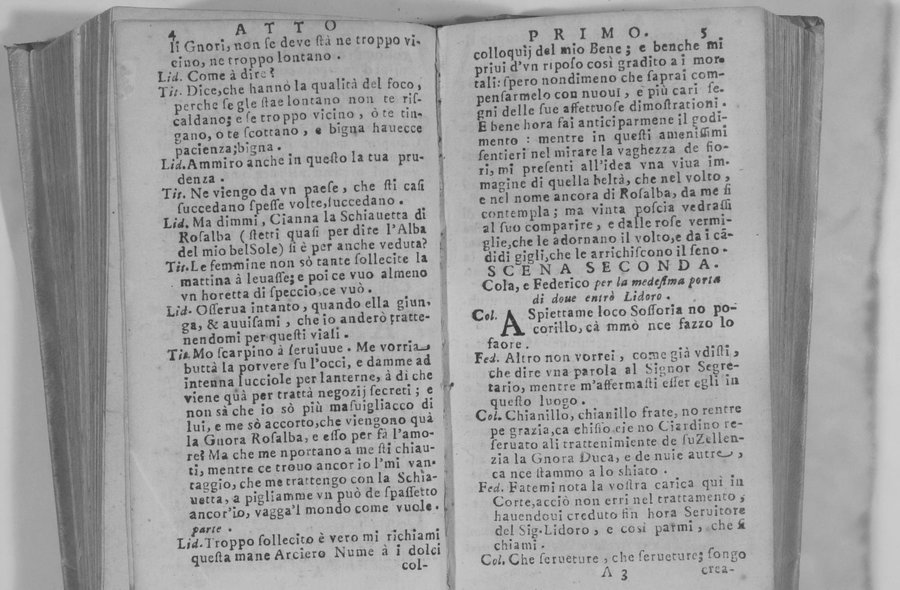 4 ATTO
li Gnori, non ſe deve ſtà ne troppo vi-
cino, ne troppo lontano.
Lid. Come à dire?
Tit. Dice, che hannò la qualità del foco,
perche ſe gle ſtae lontano non te riſ-
caldano; e ſe troppo vicino, ò te tin-
gano, o te ſcottano, e bigna hauecce
pacienza; bigna.
Lid. Ammiro anche in queſto la tua pru-
denza.
Tit. Ne viengo da vn paeſe, che ſti caſi
ſuccedano ſpeſſe volte, ſuccedano.
Lid. Ma dimmi, Cianna la Schiauetta di
Roſalba (ſtetti quaſi per dire l'Alba
del mio bel Sole) ſi è per anche veduta?
Tit. Le femmine non sò tante ſollecite la
mattina à leuaſſe; e poi ce vuò almeno
vn horetta di ſpeccio, ce vuò.
Lid. Oſſerua intanto, quando ella giun,
ga, & auuiſami, che io anderò tratte-
nendomi per queſti viali.
Tit. Mo ſcarpino à ſeruiuue. Me vorria
buttà la porvere ſu l'occi, e damme ad
intenna lucciole per lanterne, à di che
viene quà per trattà negozij ſecreti; e
non sà che io sò più maſuigliacco di
lui, e me sò accorto, che viengono quà
la Gnora Roſalba, e eſſo per fà l'amo-
re? Ma che me nportano a me ſti chiau-
ti, mentre ce trouo ancor io l'mi van-
taggio, che me trattengo con la Schia-
uetta, a pigliamme vn può de ſpaſſetto
ancor'io, vagga'l mondo come vuole.
parte.
Lid. Troppo ſollecito è vero mi richiami
queſta mane Arciero Nume à i dolci
col-
PRIMO. 5
colloquij del mio Bene; e benche mi
priui d'vn ripoſo così gradito a i mor-
tali: ſpero nondimeno che ſaprai com-
penſarmelo con nuoui, e più cari ſe-
gni delle ſue affettuoſe dimoſtrationi.
E bene hora fai anticiparmene il godi-
mento: mentre in queſti ameniſſimi
ſentieri nel mirare la vaghezza de fio-
ri, mi preſenti all'idea vna viua im-
magine di quella beltà, che nel volto,
e nel nome ancora di Roſalba, da me ſi
contempla; ma vinta poſcia vedraſſi
al ſuo comparire, e dalle roſe vermi-
glie, che le adornano il volto, e da i cā-
didi gigli, che le arrichiſcono il ſeno.
SCENA SECONDA.
Cola, e Federico per la medeſima porta
di doue entrò Lidoro.
Col. ASpiettame loco Soſſoria no po-
corillo, cà mmò nce fazzo lo
faore.
Fed. Altro non vorrei, come già vdiſti,
che dire vna parola al Signor Segre-
tario, mentre m'affermaſti eſſer egli in
queſto luogo.
Col. Chianillo, chianillo frate, no rentre
pe grazia, ca chiſſo eie no Ciardino re-
ſeruato ali trattenimiente de ſu Zellen-
zia la Gnora Duca, e de nuie autre,
ca nce ſtammo a lo shiato.
Fed. Fatemi nota la voſtra carica qui in
Corte, acciò non erri nel trattamento,
hauendoui creduto fin hora Seruitore
del Sig. Lidoro, e così parmi, che ſi
chiami.
Col. Che ſerueture, che ſerueture; ſongo
A 3 crea-